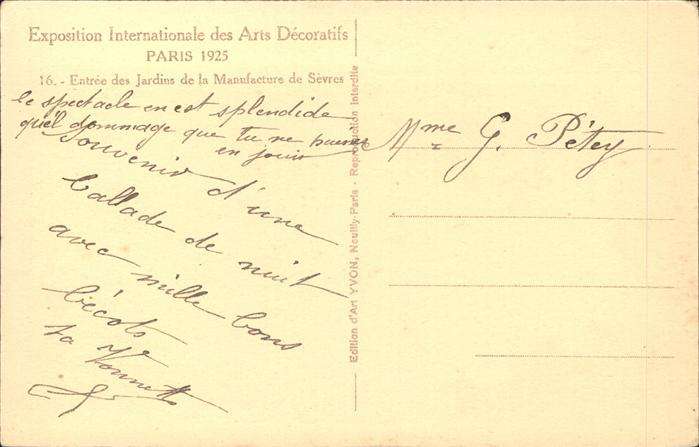 Exposition Internationale des Arts Décoratifs
PARIS 1925
16. - Entrée des Jardins de la Manufacture de Sèvres
le spectacle en est splendide
quel dommage que tu ne puisses
en jouir
Souvenir d'une
ballade de nuit
avec mille bons
bécots
ta Yonnette
Edition d'Art YVON, Neuilly-Paris - Reproduction interdite
Mme G. Pétey